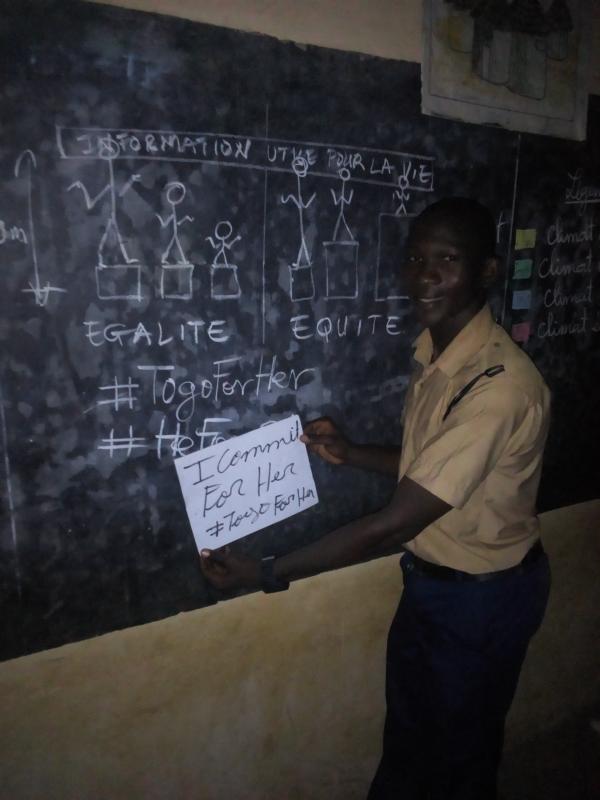 INFORMATION UTILE POUR LA VIE
EGALITE
EQUITE
#TogoForHer
#HeFo
I Commit
For Her
#Togo For Her
Climat
Climat
Climat
Climat